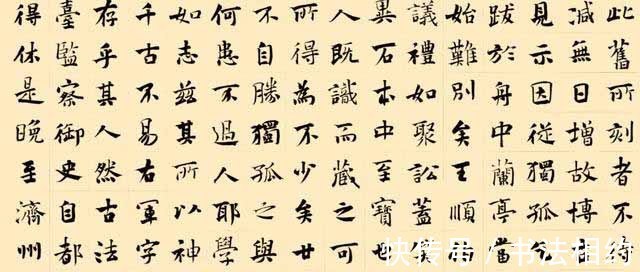 此舊所刻者不
減無日增故博
見示因從獨孤
跋於舟中蘭亭當
始難別矣王順
議禮如聚訟蓋
異石本中至寶
人既識而藏之可
所得為不少矣廿
不自勝獨孤之與
何患不過人耶學
如志茲其所以神
千古不易右軍字
存乎其人然古法
臺監察御史自都
得休是晚至濟州
快传号 / 书法相约